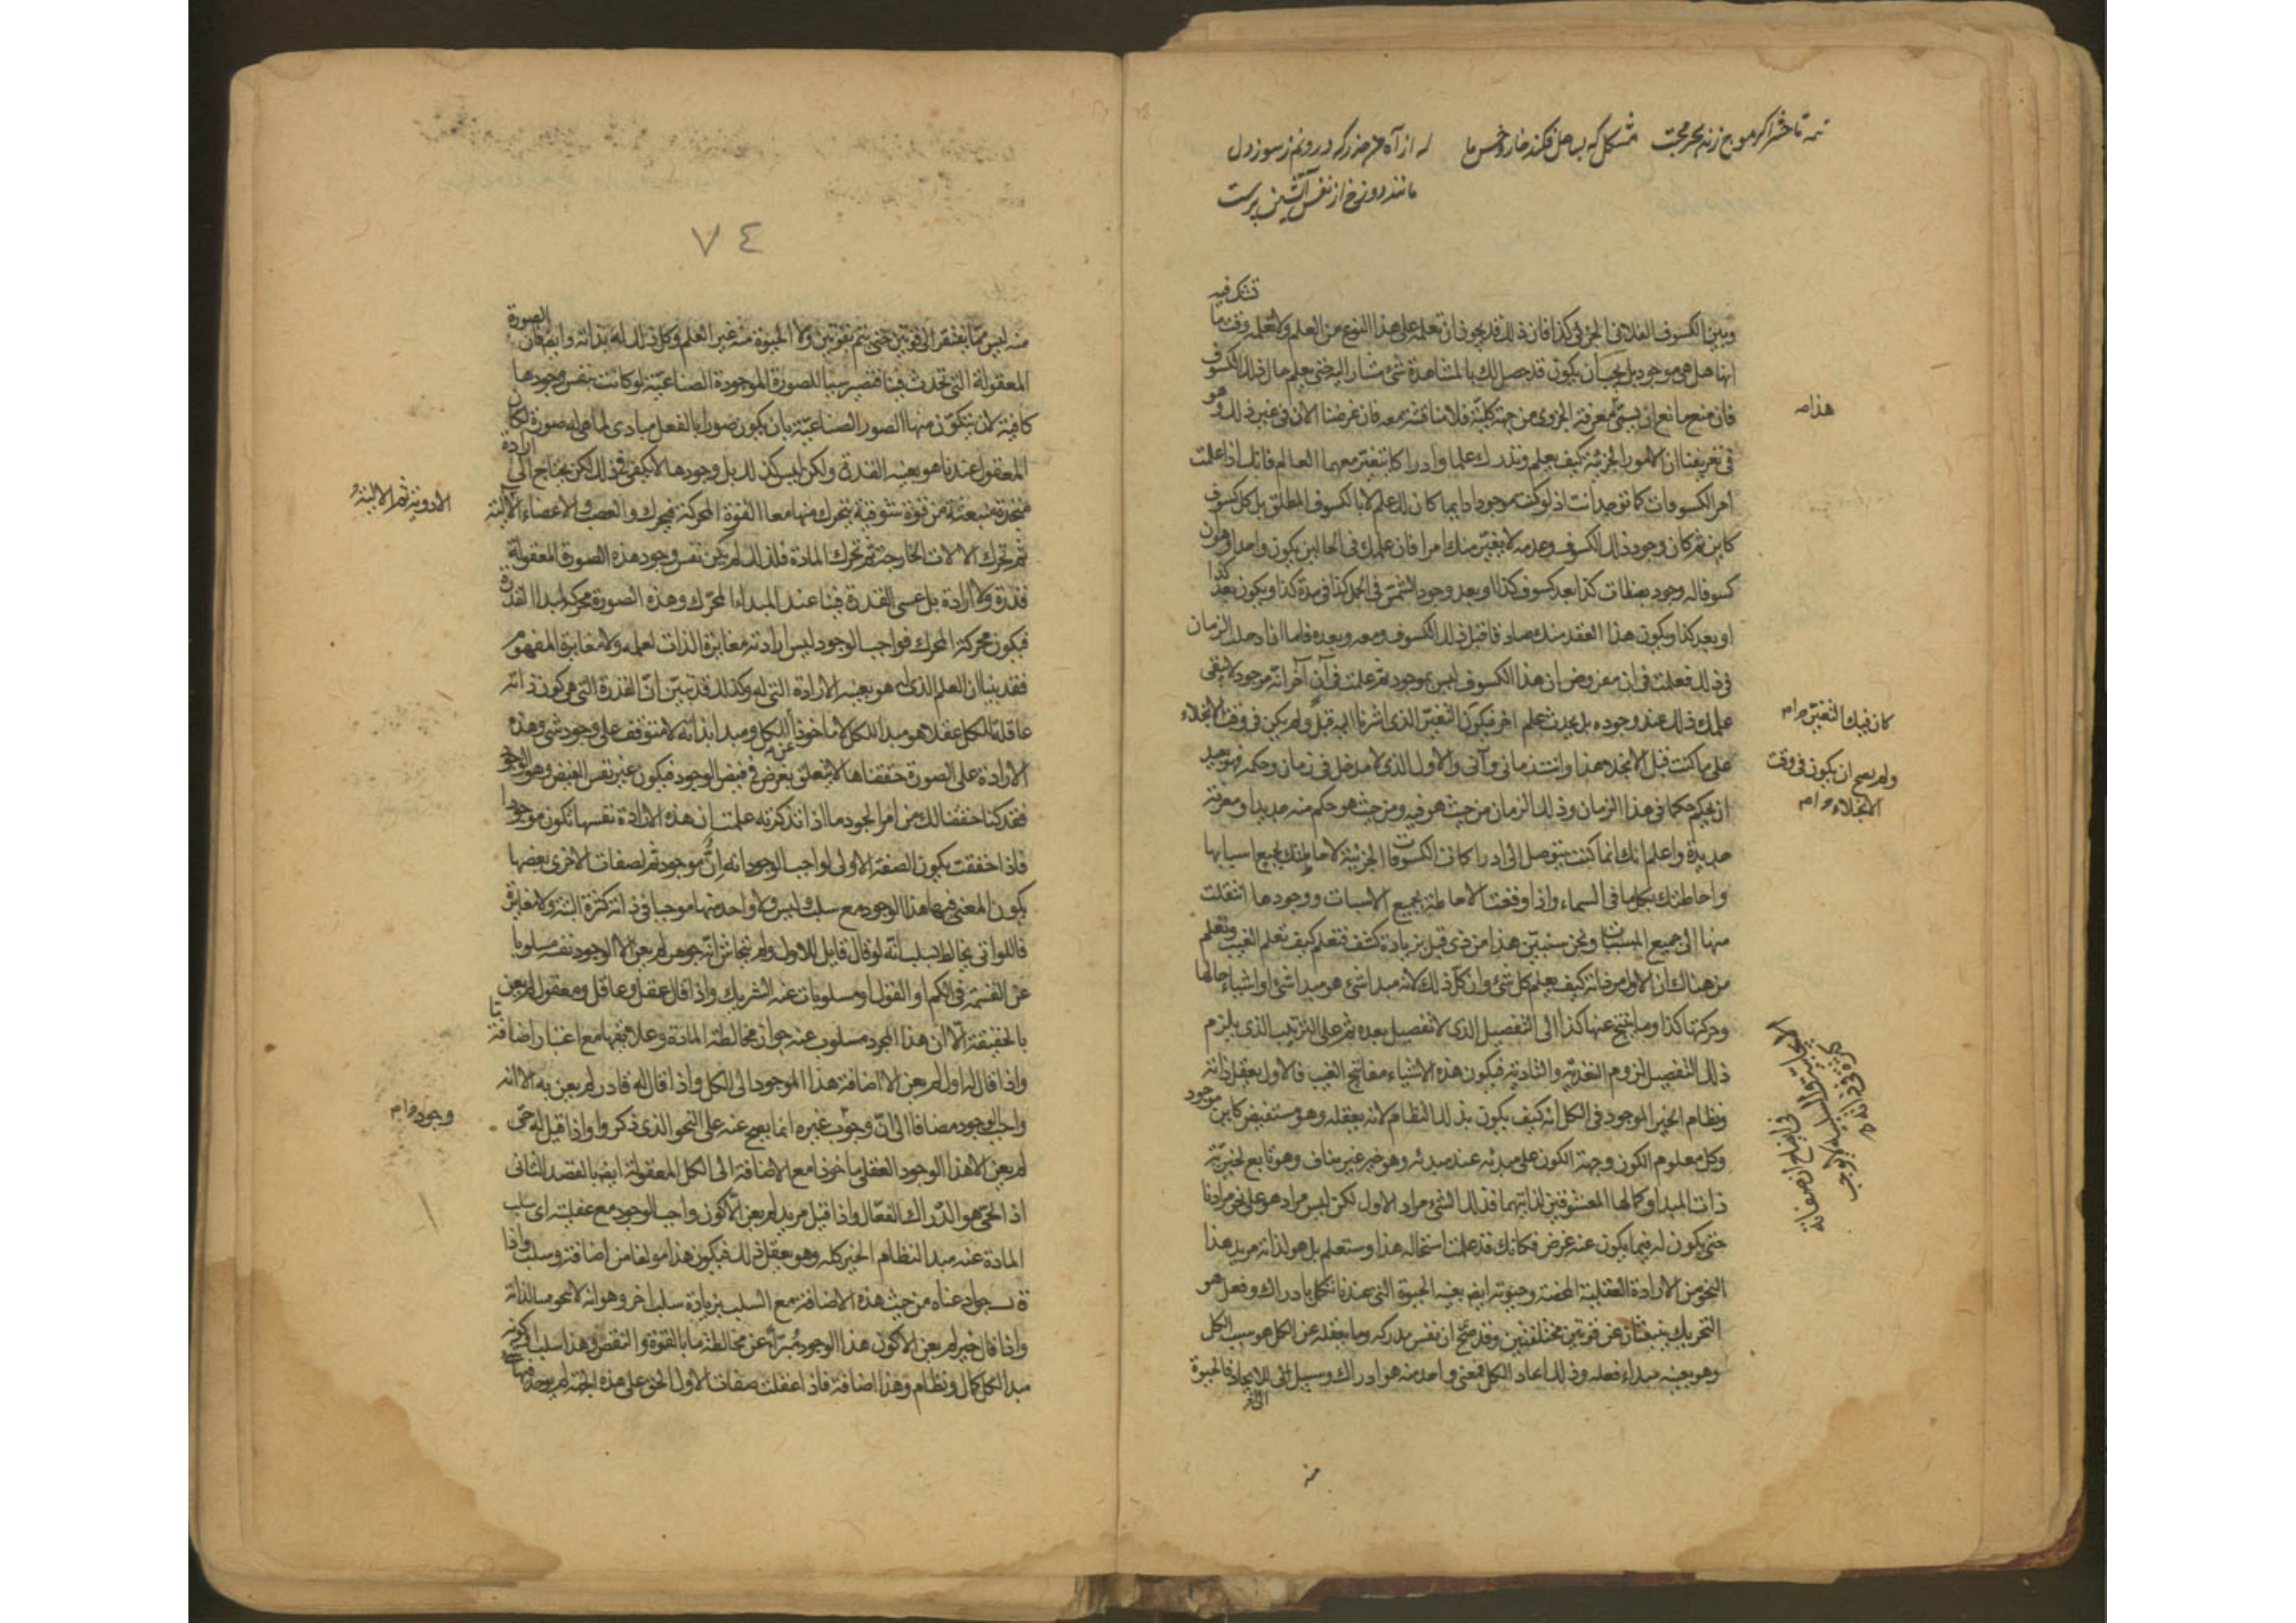 تا حشر اگر موج زند بحر محبت مشکل که بساحل فکند خار و خس ما
مانند دوزخ از نفس آتشین پرست
تشك فيه
وبين الكسوف الفلانى الجزئى كذا فان ذلك قد يجوز ان تعلمه على هذا النوع من العلم ولا تعلمه وقت ما
انها هل هى موجود بل يجب ان يكون قد حصل لك بالمشاهدة شئ مشار اليه حتى تعلم حال ذلك الكسوف
فان منع مانع ان يسمى معرفة الجزوى من جهة كلية فلا مناقشة معه فان غرضنا الان فى غير ذلك وهو
هذا
فى تعريفنا ان الامور الجزئية كيف يعلم وتدرك علما وادراكا يتغير معهما العالم فانك اذا علمت
امر الكسوفات كما توجد انت اذ لو كنت موجودا دايما كان لك علم لا بالكسوف المطلق بل بكل كسوف
كاين ثم كان وجود ذلك الكسوف وعدمه لا يغير منك امرا فان علمك فى الحالين يكون واحدا وهو ان
كسوفا له وجود بصفات كذا بعد كسوف كذا او بعد وجود الشمس فى الحمل كذا فى مدة كذا ويكون بعد كذا
او بعد كذا ويكون هذا العقد منك صادقا قبل ذلك الكسوف ومعه وبعده فاما اذا دخلت الزمان
فى ذلك فعلمت فى ان مفروض ان هذا الكسوف ليس بموجود ثم علمت فى آن آخر انه موجود لا يبقى
علمك ذلك عند وجوده بل يحدث علم اخر فيكون التغير الذى اشرنا اليه قبل ولم يكن فى وقت الانجلاء
كان فيك التغير
على ما كنت قبل الانجلاء هذا وانت زمانى وآنى والاول الذى لا مدخل فى زمان وحكمه فهو بعيد
ولم يصح ان يكون فى وقت
الانجلاء
ان يحكم حكما فى هذا الزمان وذلك الزمان من حيث هو فيه ومن حيث هو حكم منه جديد او معرفة
جديدة واعلم انك انما كنت تتوصل الى ادراكات الكسوفات الجزئية لاحاطتك بجميع اسبابها
واحاطتك بكل ما فى السماء واذا وقعت الاحاطة بجميع الاسباب ووجودها انتقلت
منها الى جميع المسببات ونحن سنبين هذا من ذى قبل بزيادة كشف فتعلم كيف تعلم الغيب وتعلم
من هناك ان الاول من ذاته كيف يعلم كل شئ وان كل ذلك لانه مبدا شئ هو مبدا شئ او اشياء حالها
وحركتها كذا وما ينتج عنها كذا الى التفصيل الذى لا تفصيل بعده ثم على الترتيب الذى يلزم
ذلك التفصيل لزوم التعدية والتادية فيكون هذه الاشياء مفاتح الغيب فالاول يعقل ذاته
ونظام الخير الموجود فى الكل انه كيف يكون بذلك النظام لانه يعقله وهو مستفيض كاين موجود
وكل معلوم الكون وجهة الكون على مبدئه عند مبدئه وهو خير غير مناف وهو تابع لخيرية
ذات المبدا وكمالها المعشوقين لذاتيهما فذلك الشئ مراد الاول لكن ليس مراد هو على نحو مرادنا
حتى يكون له فيما يكون عنه غرض فكانك قد علمت استحالة هذا وستعلم بل هو لذاته مريد هذا
النحو من الارادة العقلية المحضة وحيوته ايضا بعينه الحيوة التى عندنا تكمل بادراك وفعل هو
التحريك ينبعثان عن قوتين مختلفتين وقد صح ان نفس مدركه وما يعقله عن الكل هو سبب الكل
وهو بعينه مبداء فعله وذلك ايجاد الكل فمعنى واحد منه هو ادراك وسبيل الى الايجاد فالحيوة
منه
٧٤
منه ليس مما يفتقر الى قوتين حتى يتم بقوتين ولا الحيوة منه غير العلم وكل ذلك له بذاته وايضا فان الصورة
المعقولة التى تحدث فينا فتصير سببا للصورة الموجودة الصناعية لو كانت بنفس وجودها
كافية لان يتكون منها الصور الصناعية بان يكون صورا بالفعل مبادى لما هى له صور لكان
المعقول عندنا هو بعينه القدرة ولكن ليس كذلك بل وجودها لا يكفى فى ذلك لكن يحتاج الى ارادة
متجددة منبعثة من قوة شوقية يتحرك منها معا القوة المحركة فيحرك والعصب والاعضاء الآلية
ثم تحرك الالات الخارجة ثم تحرك المادة فلذلك لم يكن نفس وجود هذه الصورة المعقولة
قدرة ولا ارادة بل عسى القدرة فينا عند المبداء المحرك وهذه الصورة محركة لمبدا القدرة
فيكون محركة المحرك فواجب الوجود ليس ارادته مغايرة الذات لعلمه ولا مغايرة المفهوم
فقد بينا ان العلم الذى له هو بعينه الارادة التى له وكذلك قد تبين ان القدرة التى هى كون ذاته
عاقلة للكل عقلا هو مبدا للكل لا ماخوذا عن الكل ومبدا بذاته لا متوقف على وجود شئ وهذه
الارادة على الصورة حققناها لا يتعلق بغرض فى فيض الوجود فيكون غير نفس الفيض وهو الوجود
فقد كنا حققنا لك من امر الجود ما اذا تذكرته علمت ان هذه الارادة نفسها تكون موجودا
فاذا حققت يكون الصفة الاولى لواجب الوجود انه ان وموجود ثم لصفات الاخرى بعضها
يكون المعنى فيها هذا الوجود مع سلب وليس ولا واحد منها موجبا فى ذاته كثرة البتة ولا مغايرة
فاللواتى يخالط السلب انه لو قال قايل للاول ولم يتحاش انه جوهر لم يعن الا الوجود نفسه مسلوبا
عن القسمة فى الكم او القول او مسلوبات عنه الشريك واذا قال عقل وعاقل ومعقول لم يعن
بالحقيقة الا ان هذا المجرد مسلوب عنه جواز مخالطة المادة وعلايقها مع اعتبار اضافة
واذا قال له اول لم يعن الا اضافة هذا الموجود الى الكل واذا قال له قادر لم يعن به الا انه
واجب الوجود مضافا الى ان وجوب غيره انما يصح عنه على النحو الذى ذكروا واذا قيل له حى
وجود
لم يعن الا هذا الوجود العقلى ماخوذا مع الاضافة الى الكل المعقولة ايضا بالقصد الثانى
اذ الحى هو الدراك الفعال واذا قيل مريد لم يعن الا كون واجب الوجود مع عقليته اى سلب
المادة عنه مبدا لنظام الخير كله وهو يعقل ذلك فيكون هذا مولفا من اضافة وسلب واذا
قال جواد عناه من حيث هذه الاضافة مع السلب بزيادة سلب اخر وهو انه لا ينحو مبالذاته
واذا قال خير لم يعن الا كون هذا الوجود مبرأ عن مخالطة ما بالقوة والنقص وهذا سلب او كونه
مبدا لكل كمال ونظام وهذا اضافة فاذا عقلت صفات الاول الحق على هذه الجهة لم يوجد فيها شئ